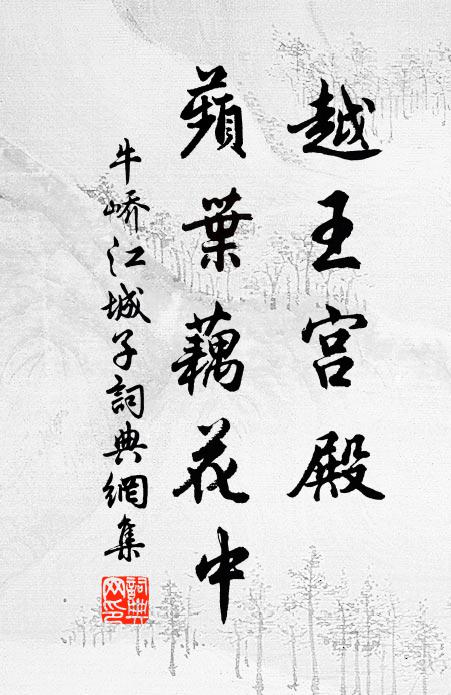 越王宫殿
蘋葉藕花中
牛峤江城子詞典網集
詞典網印